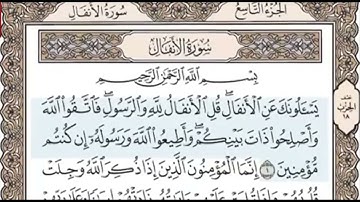 الجزء التاسع
سورة الأنفال
سورة الأنفال
بسم الله الرحمن الرحيم
يَسْـَٔلُونَكَ عَنِ ٱلْأَنفَالِ ۖ قُلِ ٱلْأَنفَالُ لِلَّهِ وَٱلرَّسُولِ ۖ فَٱتَّقُوا۟ ٱللَّهَ
وَأَصْلِحُوا۟ ذَاتَ بَيْنِكُمْ ۖ وَأَطِيعُوا۟ ٱللَّهَ وَرَسُولَهُۥٓ إِن كُنتُم
مُّؤْمِنِينَ ١ إِنَّمَا ٱلْمُؤْمِنُونَ ٱلَّذِينَ إِذَا ذُكِرَ ٱللَّهُ وَجِلَتْ